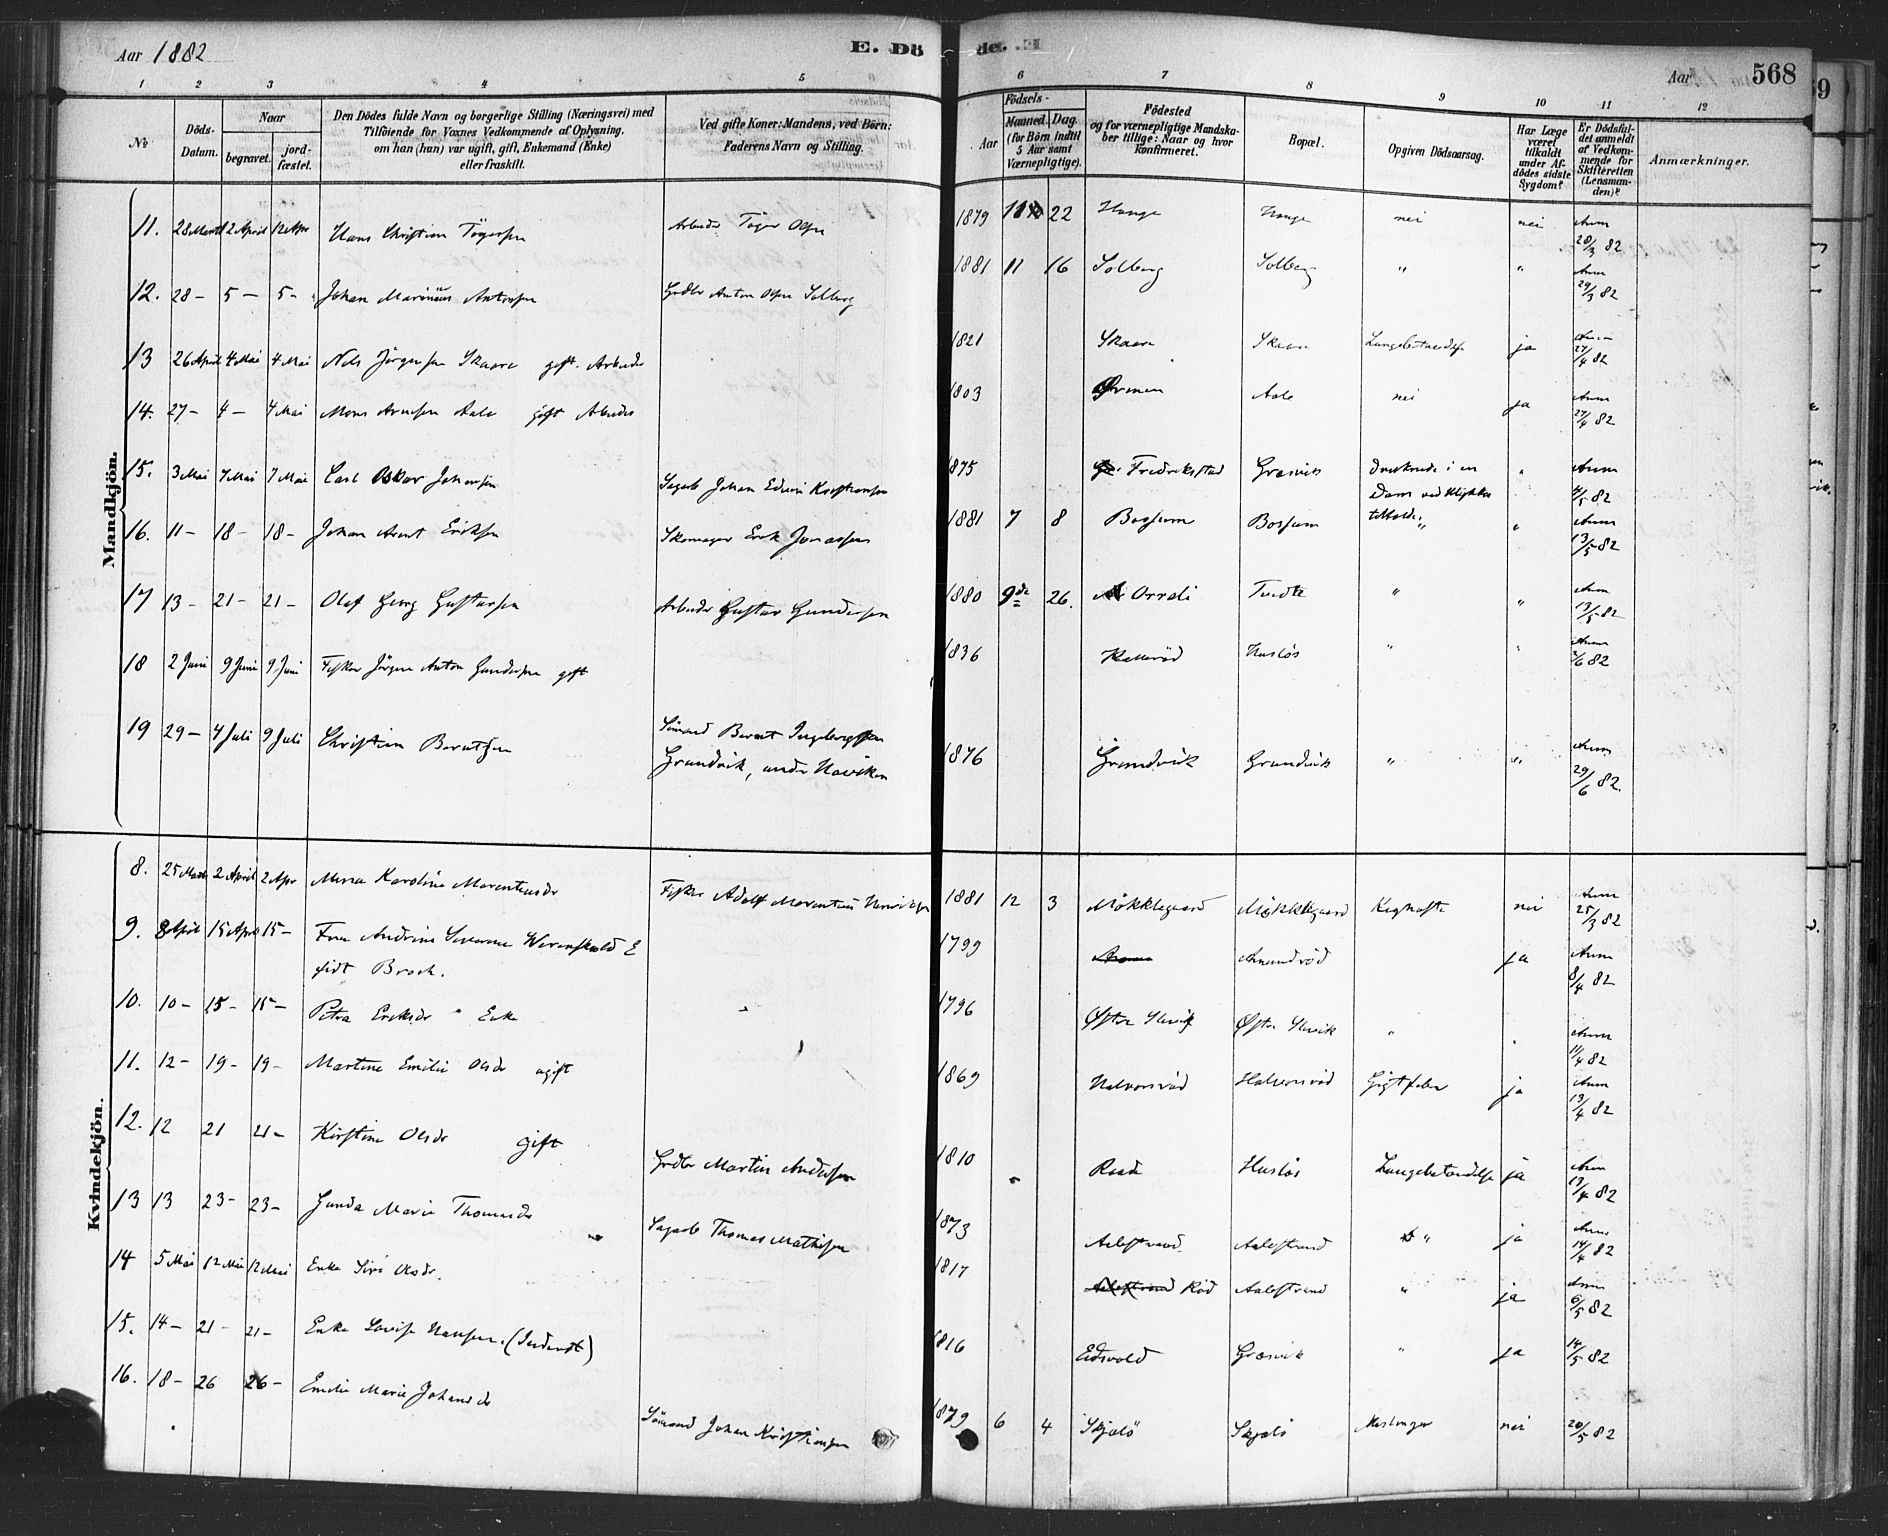 Aar 1882
E. Dö
de. .E
Aar 568
1 2 3 4 5 6 7 8 9 10 11 12
No
Döds-Datum.
Naar
begravet.
jord-fæstet.
Den Dödes fulde Navn og borgerlige Stilling (Næringsvei) med
Tilföiende for Voxnes Vedkommende af Oplysning,
om han (hun) var ugift, gift, Enkemand (Enke)
eller fraskilt.
Ved gifte Koner: Mandens, ved Börn:
Faderens Navn og Stilling.
Födsels-
Aar
Maaned. Dag.
(for Börn indtil
5 Aar samt
Værnepligtige).
Födested
og for værnepligtige Mandska-
ber tillige: Naar og hvor
konfirmeret.
Bopæl.
Opgiven Dödsaarsag.
Har Læge
været
tilkaldt
under Af-
dödes sidste
Sygdom?
Er Dödsfal-
det anmeldt
af Vedkom-
mende for
Skifteretten
(Lensman-
den)?
Anmærkninger.
Mandkjön.
11. 28 Marts 12 April 12 Apr Hans Christian Tögersen Arbeider Töger Olsen 1879 11 22 Hauge Hauge nei nei Anm 28/3 82
12. 28 – 5 – 5 – Johan Marinius Antonsen Grdbr Anton Olsen Solberg 1881 11 16 Solberg Solberg " " Anm 29/3 82
13 26 April 4 Mai 4 Mai Nils Jörgensen Skaare gift. Arbeider 1821 Skaare Skaare Lungebetændelse ja Anm 27/4 82
14. 27 – 4 – 4 Mai Mons Arnesen Aale gift Arbeider 1803 Aale nei ja Anm 27/4 82
15. 3 Mai 7 Mai 7 Mai Carl Oskar Johansen Sagarb Johan Edvin Kristiansen 1875 Fredrikstad Græsvik druknede i en Dam ved Ulykkestilfælde " Anm 4/5 82
16. 11 – 18 – 18 – Johan Arent Eriksen Skomager Erik Jonassen 1881 7 8 Bossum Bossum " " Anm 13/5 82
17 13 – 21 – 21 – Olaf Georg Gustavsen Arbeider Gustav Gundersen 1880 9de 26. Orreli Tredte " " Anm 13/5 82
18 2 Juni 9 Juni 9 Juni Fisker Jörgen Anton Gundersen gift 1836 Kalleröd Huslös " " Anm 2/6 82
19 29 – 4 Juli 9 Juli Christian Berntsen Sömand Bernt Ingebrigtsen
Grundvik, under Haviken 1876 Grundvik Grundvik " " Anm 29/6 82.
Kvindekjön.
8. 25 Marts 2 April 2 Apr Mina Karoline Marentiusdr Fisker Adolf Marentius Henriksen 1881 12 3 Mökklegaard Mökklegaard Kighoste nei Anm 25/3 82
9. 8 April 15 April 15 – Fru Andrine Severine Werenskiold E
født Brock. 1799 Anundröd ja Anm 8/4 82
10. 10 – 15 – 15 – Petra Eriksdr " Enke 1796 Øster Havik Øster Havik " " Anm 11/4 82
11. 12 – 19 – 19 – Martine Emilie Olsdr ugift 1869 Halvorsröd Halvorsröd Gigtfeber ja Anm 13/4 82
12. 12 21 21 – Kirstine Olsdr gift Grdbr Martin Andersen 1810 Raade Huslös Lungebetændelse ja Anm 13/4 82
13 13 23 – 23 – Gunda Marie Thomasdr Sagarb Thomas Mathisen 1873 Aalestrand Aalestrand " ja Anm 14/4 82
14 5 Mai 12 Mai 12 Mai Enke Siri Olsdr. 1817 Aalestrand Röd Aalestrand " ja Anm 6/5 82
15. 14 – 21 – 21 – Enke Lovise Hansen. 1816 Eidsvold Græsvik " ja 14/5 82
16. 18 – 26 26 – Emilie Marie Johansdr Sömand Johan Kristiansen 1879 6 4 Skjælö Skjælö Meslinger nei 20/5 82